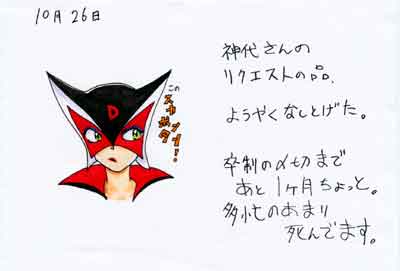 10月26日
神代さんの
リクエストの品、
ようやくなしとげた。
卒制の〆切まで
あと1ヶ月ちょっと。
多忙のあまり
死んでます。
D
この
スカ
ポン
タン!